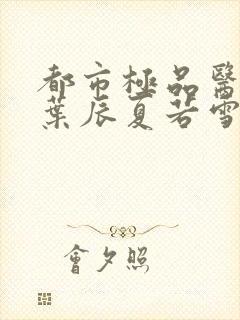 都市極品醫
葉辰夏若雪
會夕照